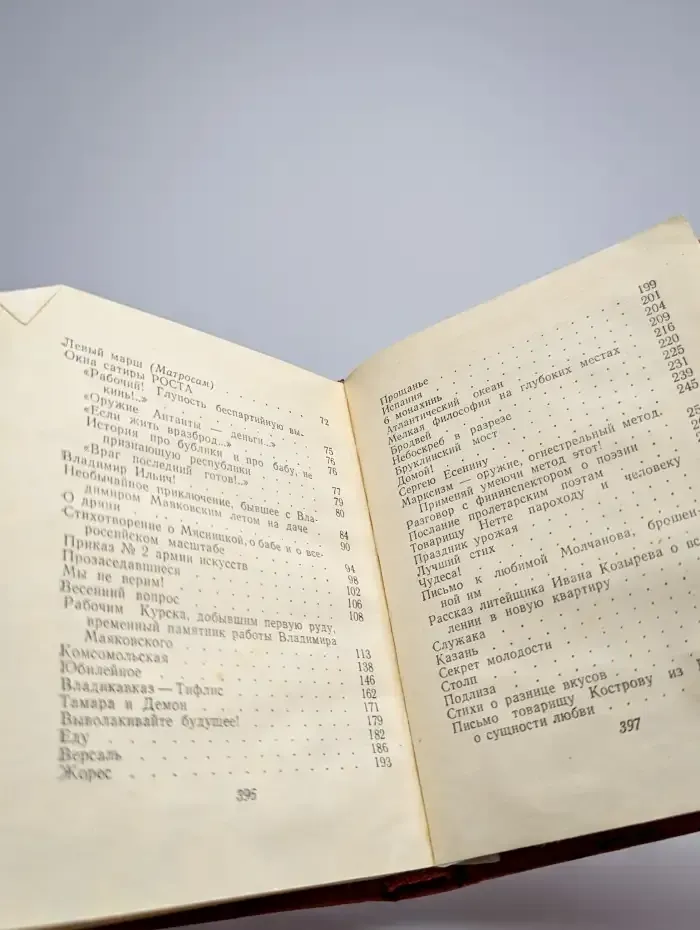 Левый марш (Матросам)
Окна сатиры РОСТА
«Рабочий! Глупость беспартийную вы-
кинь!..» 72
«Оружие Антанты — деньги...» 75
«Если жить вразброд...» 76
История про бублики и про бабу, не
признающую республики 76
«Враг последний готов!..» 77
Владимир Ильич! 79
Необычайное приключение, бывшее с Вла-
димиром Маяковским летом на даче 80
О дряни 84
Стихотворение о Мясницкой, о бабе и о все-
российском масштабе 90
Приказ № 2 армии искусств 94
Прозаседавшиеся 98
Мы не верим! 102
Весенний вопрос 106
Рабочим Курска, добывшим первую руду, 108
временный памятник работы Владимира
Маяковского 113
Комсомольская 138
Юбилейное 146
Владикавказ — Тифлис 162
Тамара и Демон 171
Выволакивайте будущее! 179
Еду 182
Версаль 186
Жорес 193
396
Прощанье 199
Испания 201
6 монахинь 204
Атлантический океан 209
Мелкая философия на глубоких местах 216
Бродвей 220
Небоскреб в разрезе 225
Бруклинский мост 231
Домой! 239
Сергею Есенину 245
Марксизм — оружие, огнестрельный метод.
Применяй умеючи метод этот!
Разговор с фининспектором о поэзии
Послание пролетарским поэтам
Товарищу Нетте пароходу и человеку
Праздник урожая
Лучший стих
Чудеса!
Письмо к любимой Молчанова, брошен-
ной им
Рассказ литейщика Ивана Козырева о вс
лении в новую квартиру
Служака
Казань
Секрет молодости
Столп
Подлиза
Стихи о разнице вкусов
Письмо товарищу Кострову из
о сущности любви
397